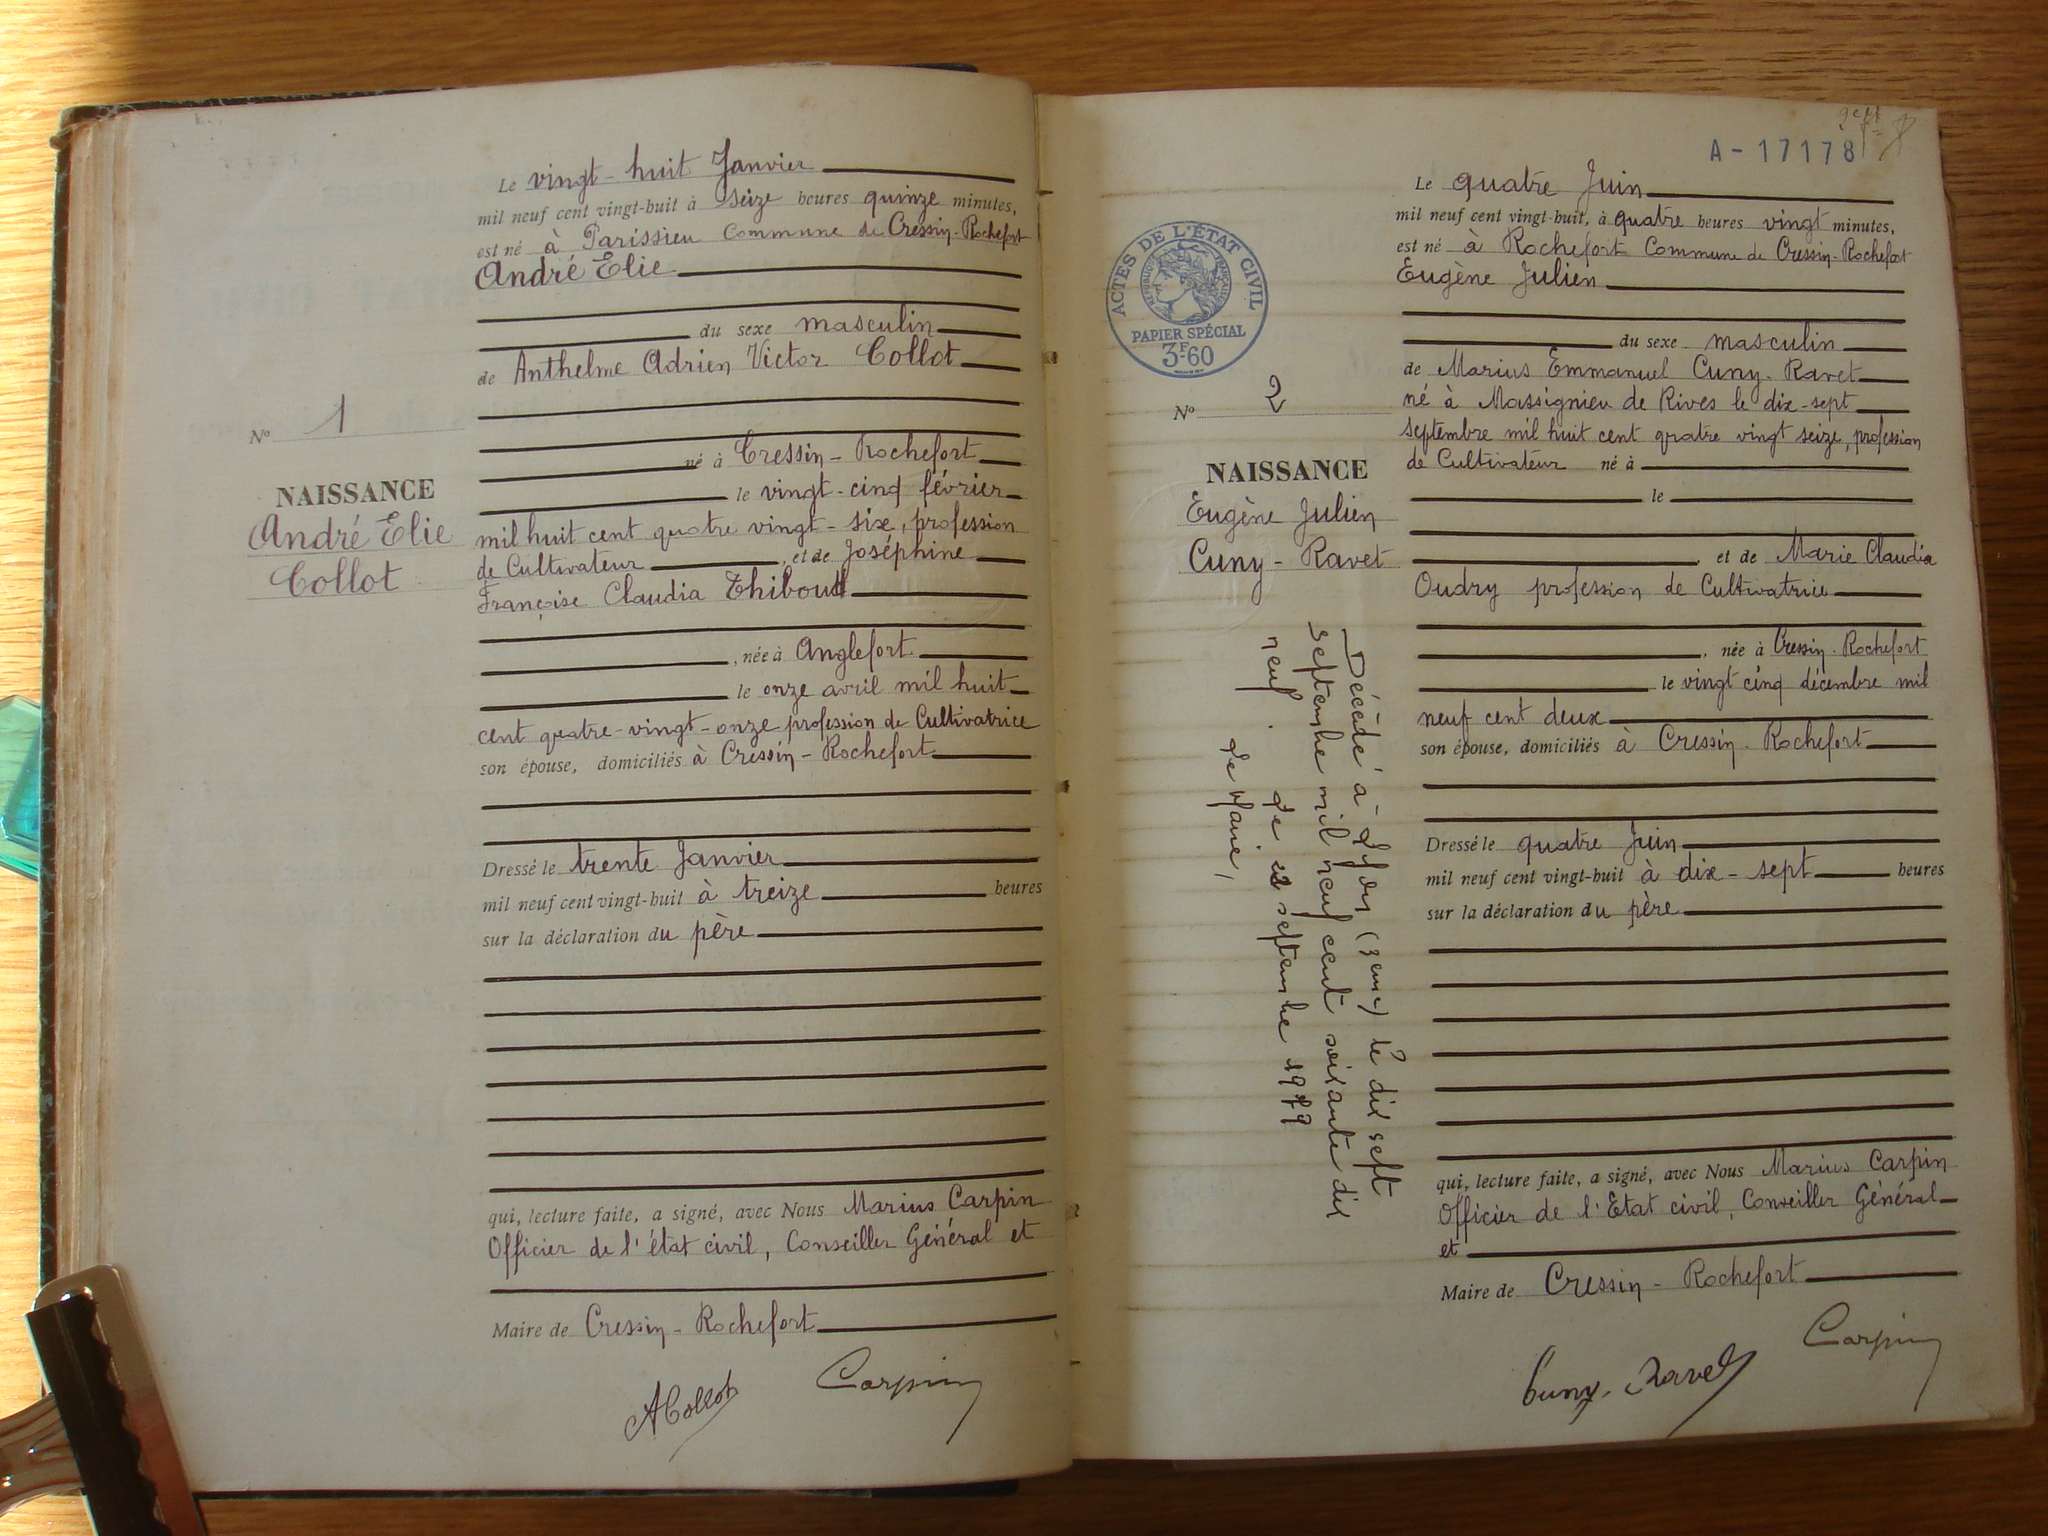 Le vingt-huit Janvier
mil neuf cent vingt-huit à seize heures quinze minutes,
est né à Parissieu Commune de Cressin-Rochefort
André Elie
du sexe masculin
de Anthelme Adrien Victor Collot
né à Cressin-Rochefort
le vingt-cinq février
mil huit cent quatre vingt-six, profession
de Cultivateur, et de Joséphine
Françoise Claudia Thiboud
, née à Anglefort
le onze avril mil huit
cent quatre-vingt-onze profession de Cultivatrice
son épouse, domiciliés à Cressin-Rochefort
Dressé le trente Janvier
mil neuf cent vingt-huit à treize heures
sur la déclaration du père
qui, lecture faite, a signé, avec Nous Marius Carpin
Officier de l'état civil, Conseiller Général et
Maire de Cressin-Rochefort
ACollot Carpin
No 1
NAISSANCE
André Elie
Collot
A-17178
ACTES DE L'ÉTAT CIVIL
RÉPUBLIQUE FRANÇAISE
PAPIER SPÉCIAL
3F60
No 2
NAISSANCE
Eugène Julien
Cuny-Ravet
Décédé à Lyon (3eme) le dix sept
septembre mil neuf cent soixante dix
neuf. Le 21 septembre 1979
Le Maire,
Le quatre Juin
mil neuf cent vingt-huit, à quatre heures vingt minutes,
est né à Rochefort Commune de Cressin-Rochefort
Eugène Julien
du sexe masculin
de Marius Emmanuel Cuny-Ravet
né à Massignieu de Rives le dix-sept
septembre mil huit cent quatre vingt seize, profession
de Cultivateur né à
le
et de Marie Claudia
Oudry profession de Cultivatrice
, née à Cressin-Rochefort
le vingt cinq décembre mil
neuf cent deux
son épouse, domiciliés à Cressin-Rochefort
Dressé le quatre Juin
mil neuf cent vingt-huit à dix-sept heures
sur la déclaration du père
qui, lecture faite, a signé, avec Nous Marius Carpin
Officier de l'Etat civil, Conseiller Général
et
Maire de Cressin-Rochefort
Cuny-Ravet Carpin